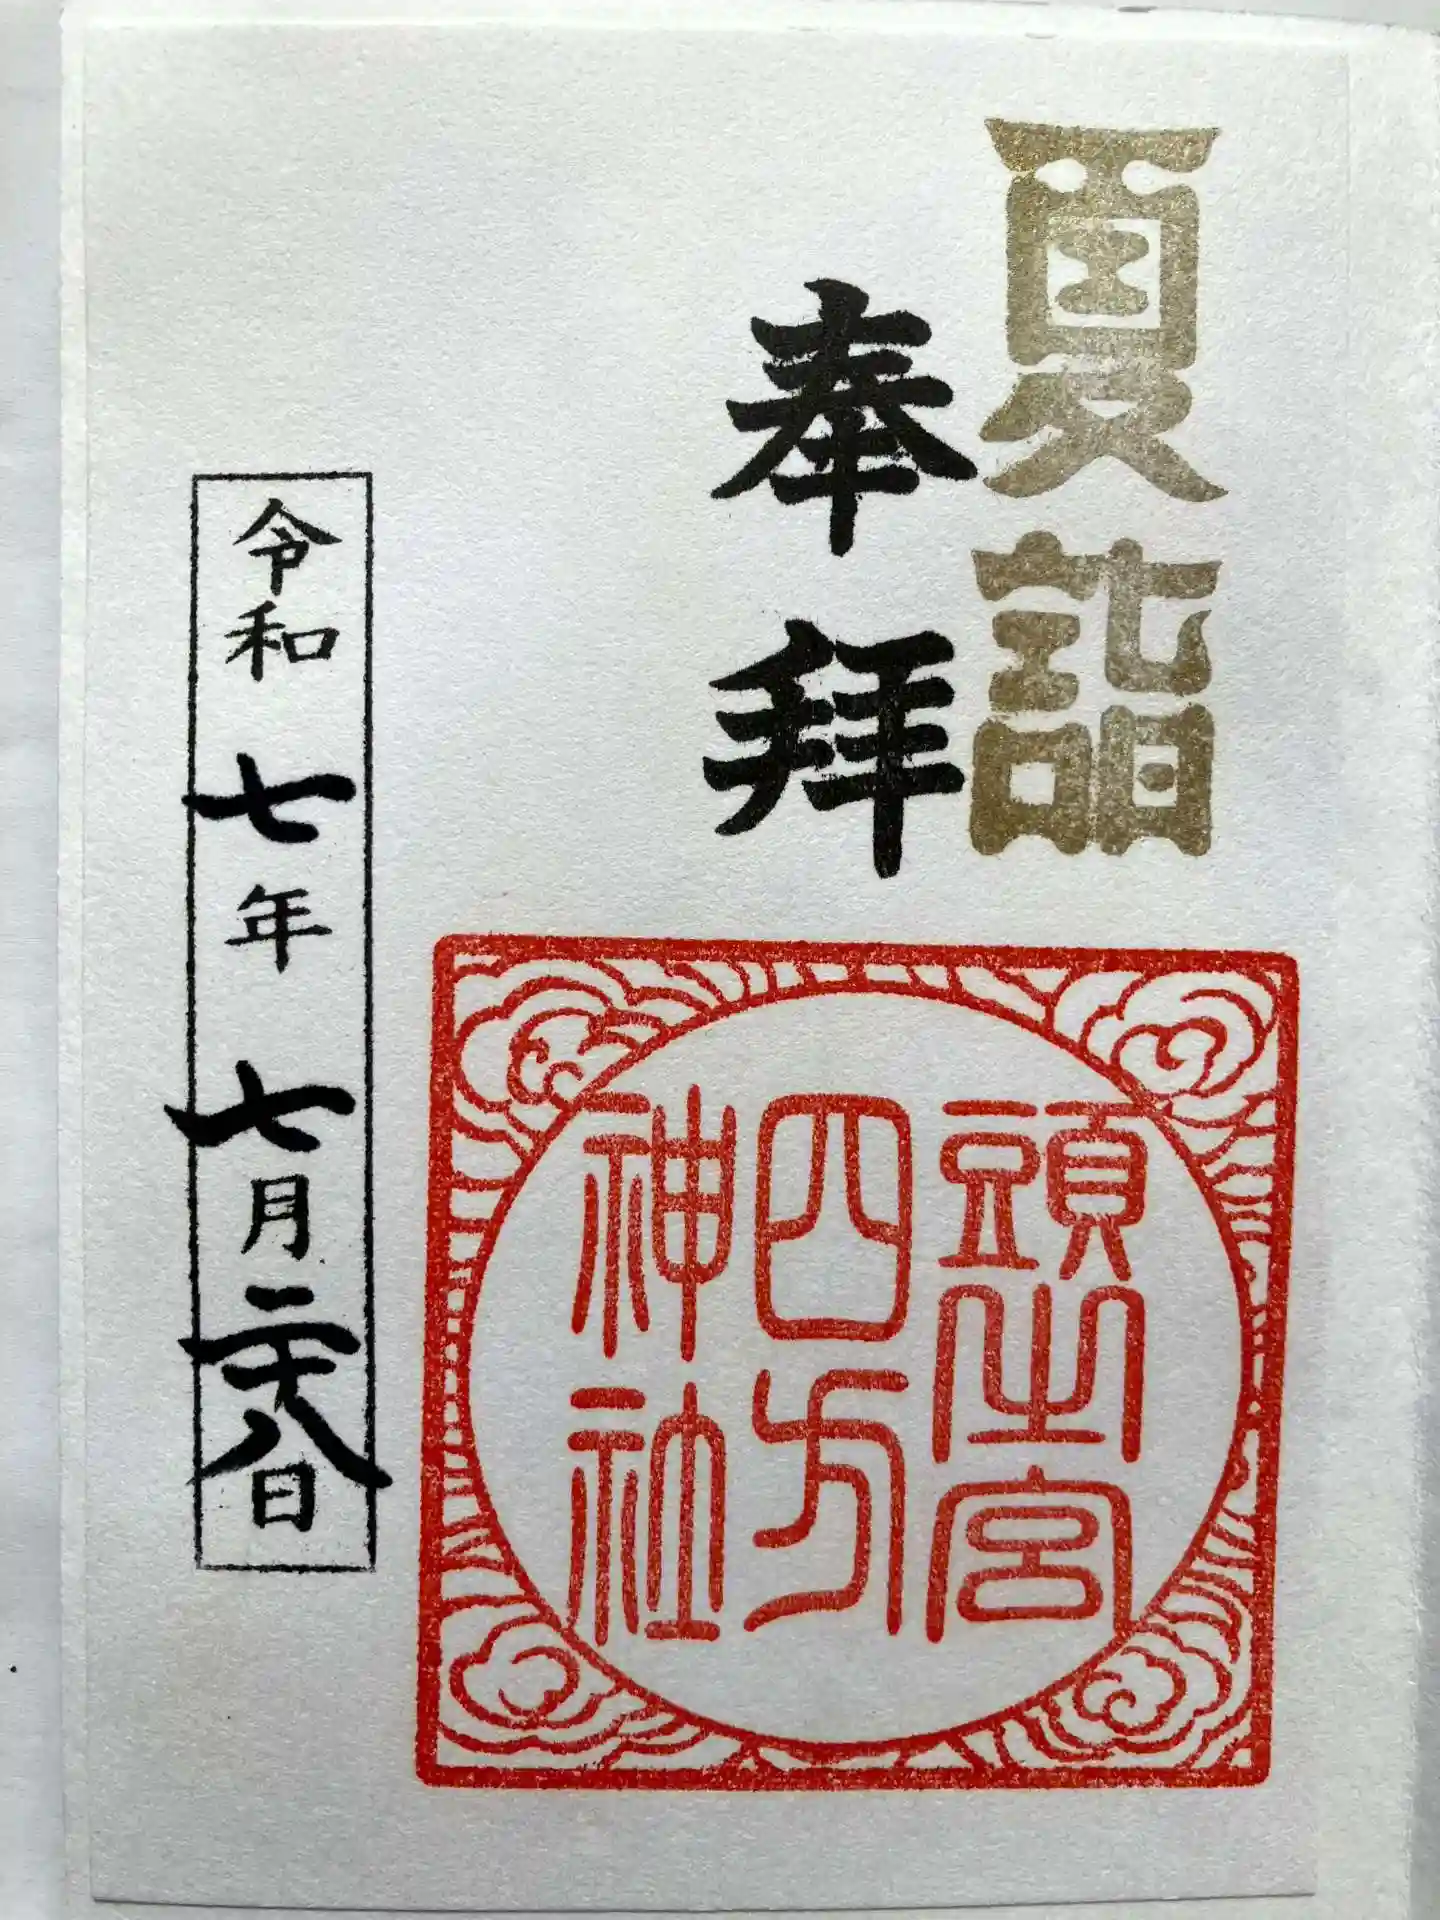 夏詣
奉拝
頭之宮
四方
神社
令和七年七月二十八日